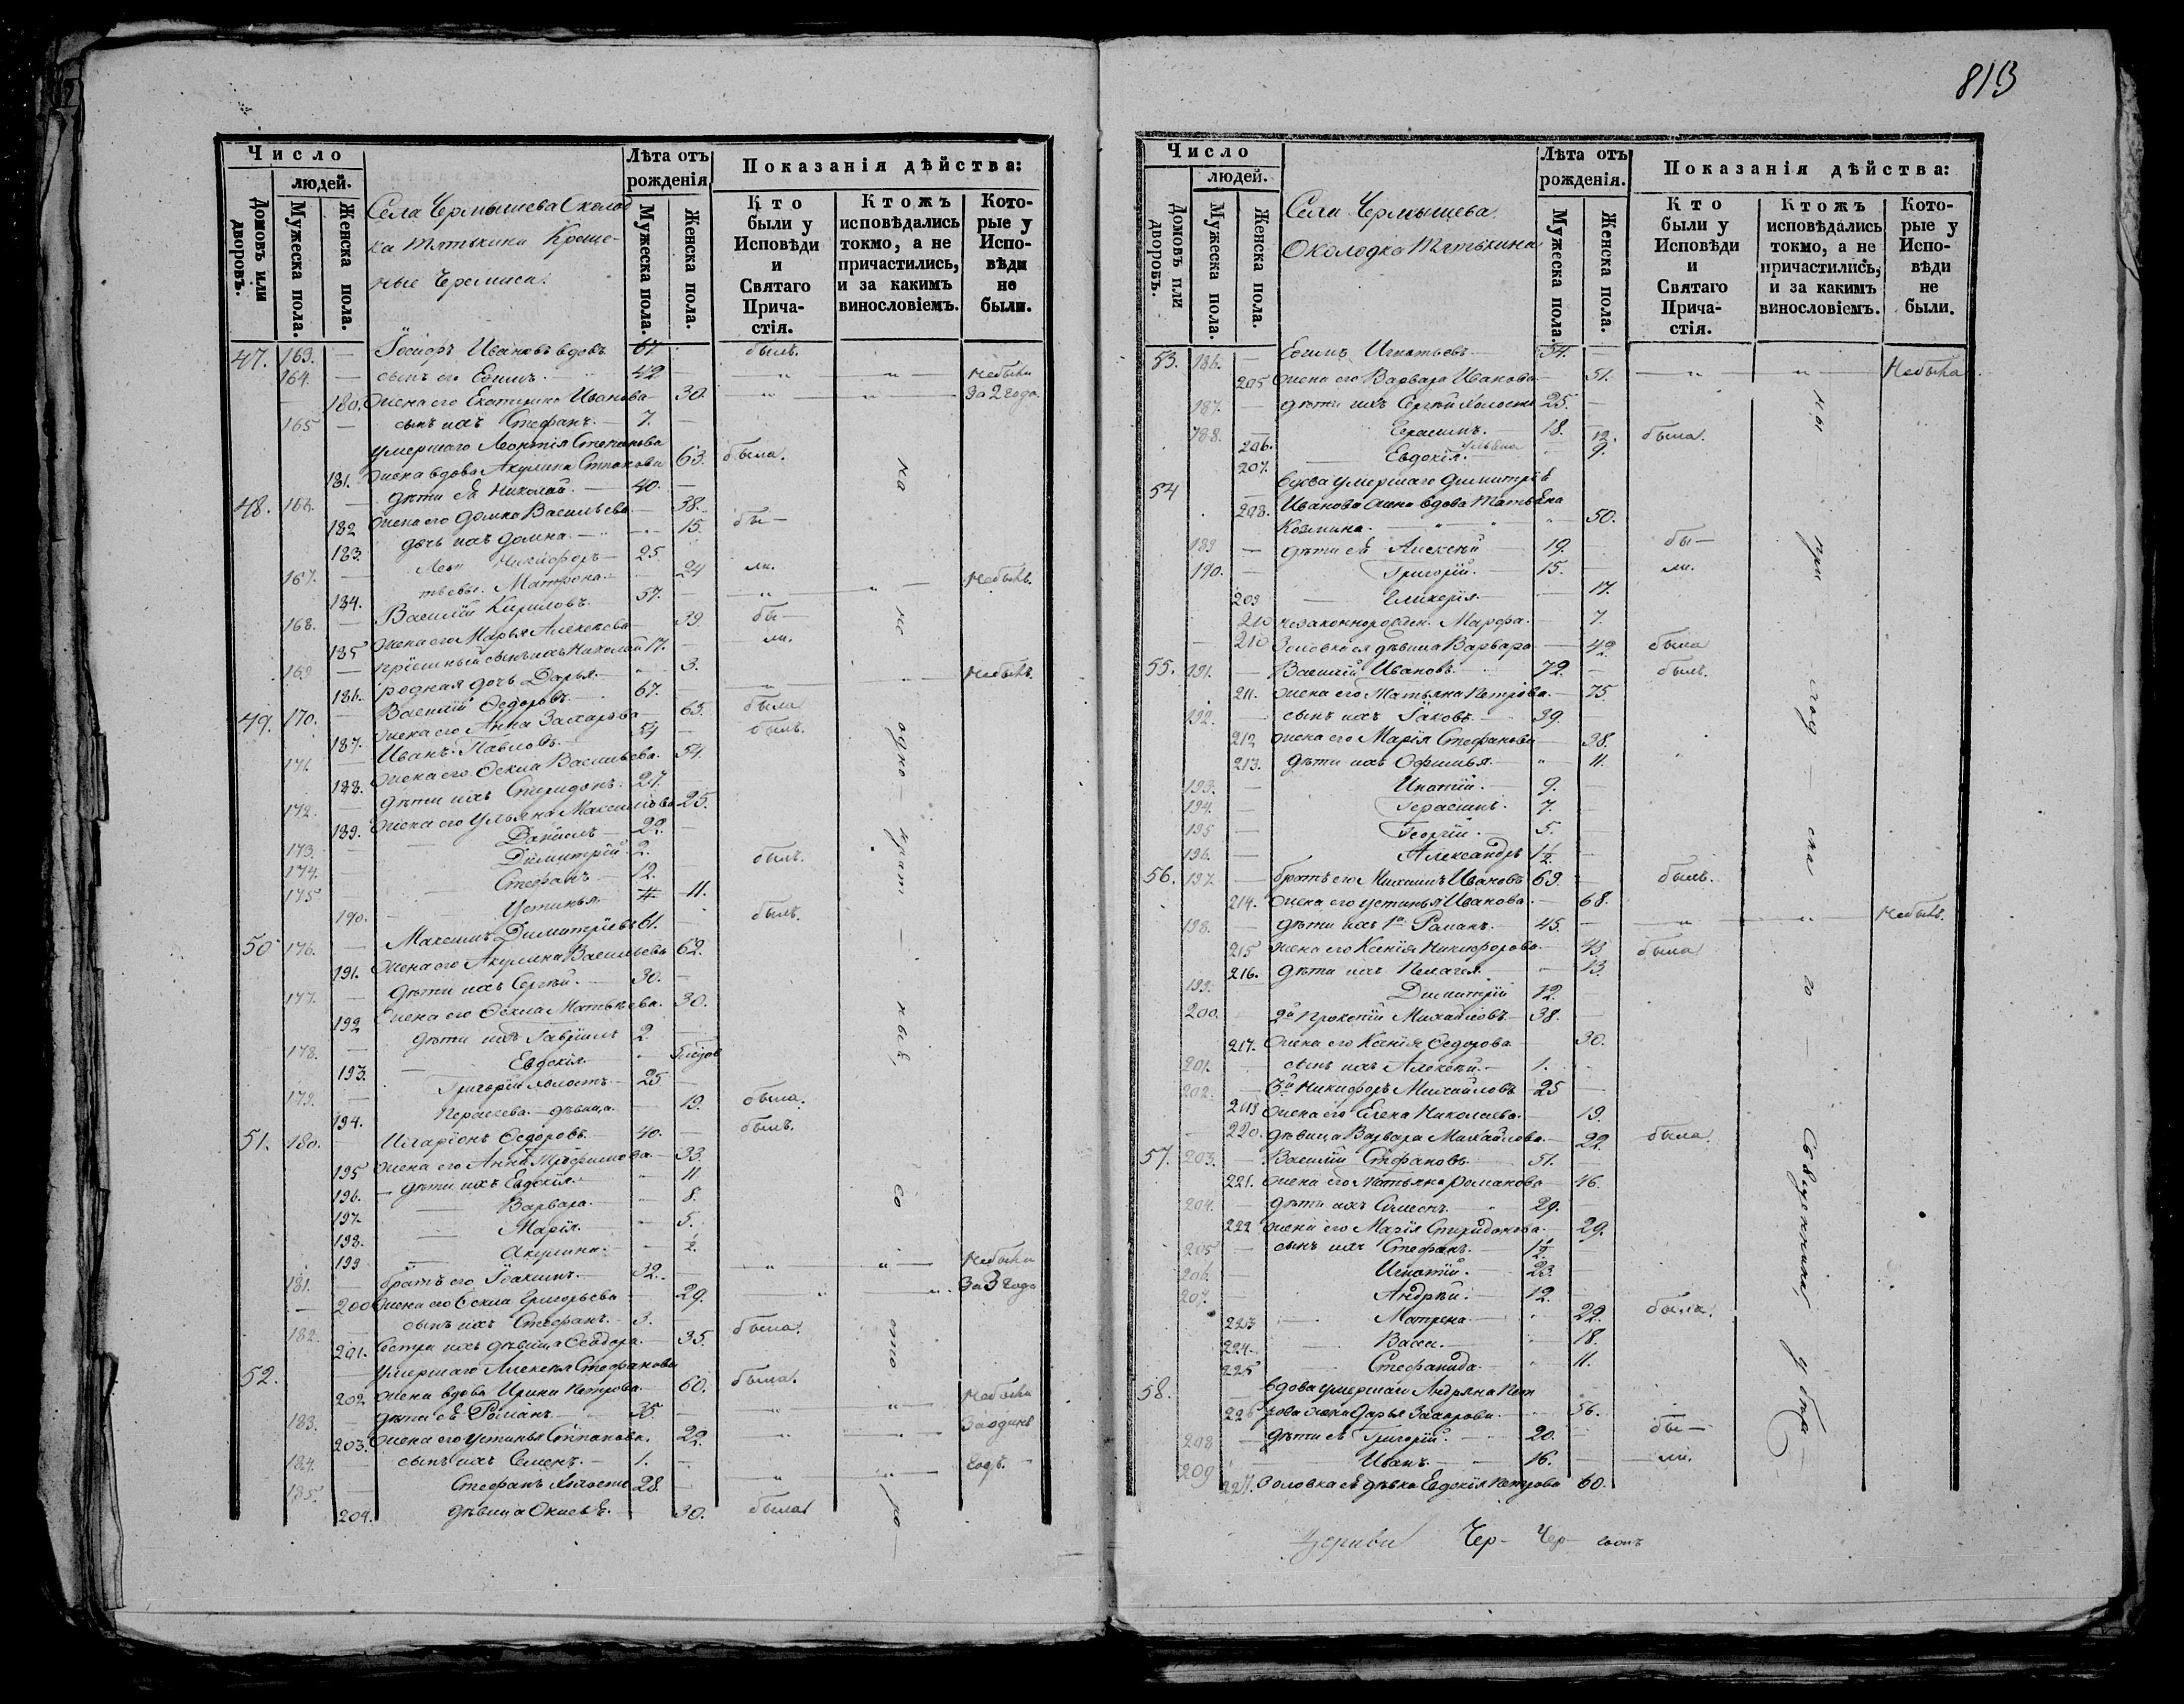 813
Число
людей.
Домовъ или дворовъ.
Мужеска пола.
Женска пола.
Села Чермышева Околод
ка Тятькина Креще-
ные Черемиси.
Лѣта отъ рожденія
Мужеска пола.
Женска пола.
Показанія дѣйства:
Кто были у Исповѣди и Святаго Прича-стія.
Ктожъ исповѣдались токмо, а не причастились, и за какимъ винословіемъ.
Кото-рые у Испо-вѣди не были.
47. 163. — Іосифъ Ивановъ вдовъ 67 былъ.
164. — сынъ его Ефимъ. 42 — „ „ Небыли
— 180. жена его Екатерина Иванова 30. „ „ за 2 года.
165 — сынъ ихъ Стефанъ. — 7. —
умершаго Леонтія Степанова
181. жена вдова Акулина 63. была.
48. 166. — дѣти ея Николай. — 40. —
182 жена его Домна Васильева — 38.
183. дочь ихъ Домна. — 15. бы—
167. — Никифоръ — 25
184. Матрона. — 24 ли. Небылъ.
168. — Василій Кириловъ. 57. —
185 жена его Марья Алексѣева — 39. бы—
169 — пріемный сынъ ихъ Николай 17. — ли.
186. родная дочь Дарья. — „ 3. Небылъ.
49. 170. — Василій Ѳедоровъ. 67. —
187. жена его Анна Захарова 65. была
171. — Иванъ Павловъ. — 54 — былъ.
188. жена его Ѳекла Васильева. 54.
172. — дѣти ихъ Спиридонъ. 27. —
189. жена его Ульяна Максимова 25.
173. — Даніилъ — 22. —
174. — Димитрій. 2. былъ.
175 — Стефанъ — 12.
190. Устинья. — 11.
50 176. — Максимъ Димитріевъ 61. — былъ.
191. жена его Акулина Васильева 62.
177. — дѣти ихъ Сергѣй. — 30. —
192 жена его Ѳекла Матвѣева. 30.
178. — дѣти ихъ Гавріилъ 2 —
193. Евдокія. „
179. — Григорій холостъ. — 25 —
194. дѣвица. — 19. была.
51. 180. Иларіонъ Ѳедоровъ. — 40. — былъ.
195 жена его Анна Трофимова. — 33.
196. — дѣти ихъ Евдокія. — „ 11
197. — Варвара. — „ 8.
198. — Марія. — „ 5.
199 — Акулина. — „ ½.
181. братъ его Іоакимъ. — 32. „ „ Небыли
— 200 жена его Ѳекла Григорьева — 29. „ „ за 3 года
182. — сынъ ихъ Стефанъ. — 3.
201. Сестра ихъ дѣвица Ѳеодора. — 35. была.
52. умершаго Алексѣя Стефанова
202 жена вдова Ирина Петрова — 60. была.
183. дѣти ея Романъ — 35. — „ „ Небыли
203. жена его Устинья Степанова. 22. „ „ за одинъ
184. — сынъ ихъ Семенъ. — 1. — годъ.
185. — Стефанъ холостъ 28. —
204. дѣвица — 30. была
на
не
одно-
крат—
со
Число
людей.
Домовъ или дворовъ.
Мужеска пола.
Женска пола.
Села Чермышева.
Околодка Тятькина
Лѣта отъ рожденія.
Мужеска пола.
Женска пола.
Показанія дѣйства:
Кто были у Исповѣди и Святаго Прича-стія.
Ктожъ исповѣдались токмо, а не причастились, и за какимъ винословіемъ.
Кото-рые у Испо-вѣди не были.
53. 186. — Ефимъ Игнатьевъ 54. —
205 жена его Варвара Иванова — 51. „ „ Небыла
187. — дѣти ихъ Сергѣй холостъ 25. —
188. — Герасимъ. — 18.
206. Ульяна 12. была.
207. Евдокія. 9.
54 вдова умершаго Димитрія
208. Иванова жена вдова Татьяна
Козмина. 50.
189 — дѣти ея Алексѣй 19. бы—
190. — Григорій. — 15. — ли.
209 — Гликерія. — 17.
210 незаконнорожден. Марфа. — 7.
210 Золовка ея дѣвица Варвара — 42. была
55. 191. — Василій Ивановъ. — 72. — былъ.
211. жена его Татьяна Петрова. — 75
192. — сынъ ихъ Іаковъ. — 39. —
212 жена его Марія Стефанова — 38.
213. дѣти ихъ Офимья. — „ 11.
193. — Игнатій. — 9. —
194. — Герасимъ. 7. —
195 — Георгій. 5. —
196. — Александръ 1½. —
56. 197. — братъ его Михаилъ Ивановъ 69. — былъ.
214. жена его Устинья Иванова. — 68.
198. — дѣти ихъ 1й Романъ. — 45. — „ „ Небылъ.
215 жена его Ксенія Никифорова. — 43. была
216. дѣти ихъ Пелагея. „ 13.
199. Димитрій 12. —
200. 2й Прокопій Михайловъ. — 38. —
217. жена его Ксенія Ѳедорова 30.
201. сынъ ихъ Алексѣй. — 1.
202. 3й Никифоръ Михайловъ 25 —
219 жена его Елена Николаева. — 19.
220. дѣвица Варвара Михайлова. — 22. была.
57. 203. — Василій Стефановъ. 51. —
221. жена его Татьяна Романова 46.
204. дѣти ихъ Симеонъ. — „ 29.
222 жена его Марія Спиридонова. 29.
205 — сынъ ихъ Стефанъ. — 1½. —
206. — Игнатій. — 23. —
207. — Андрей. 12. —
223 — Матрена. — 22. была.
224. — Васса. — 18.
225 — Стефанида. — 11.
58. вдова умершаго Андреяна Пет
226 рова жена Дарья Захарова. — 56.
208 — дѣти ея Григорій. — 20. бы—
209 — Иванъ. — 16. — ли.
227. Золовка ея дѣвка Евдокія Петрова 60.
при
ска
го
Церкви Чер- Чер-